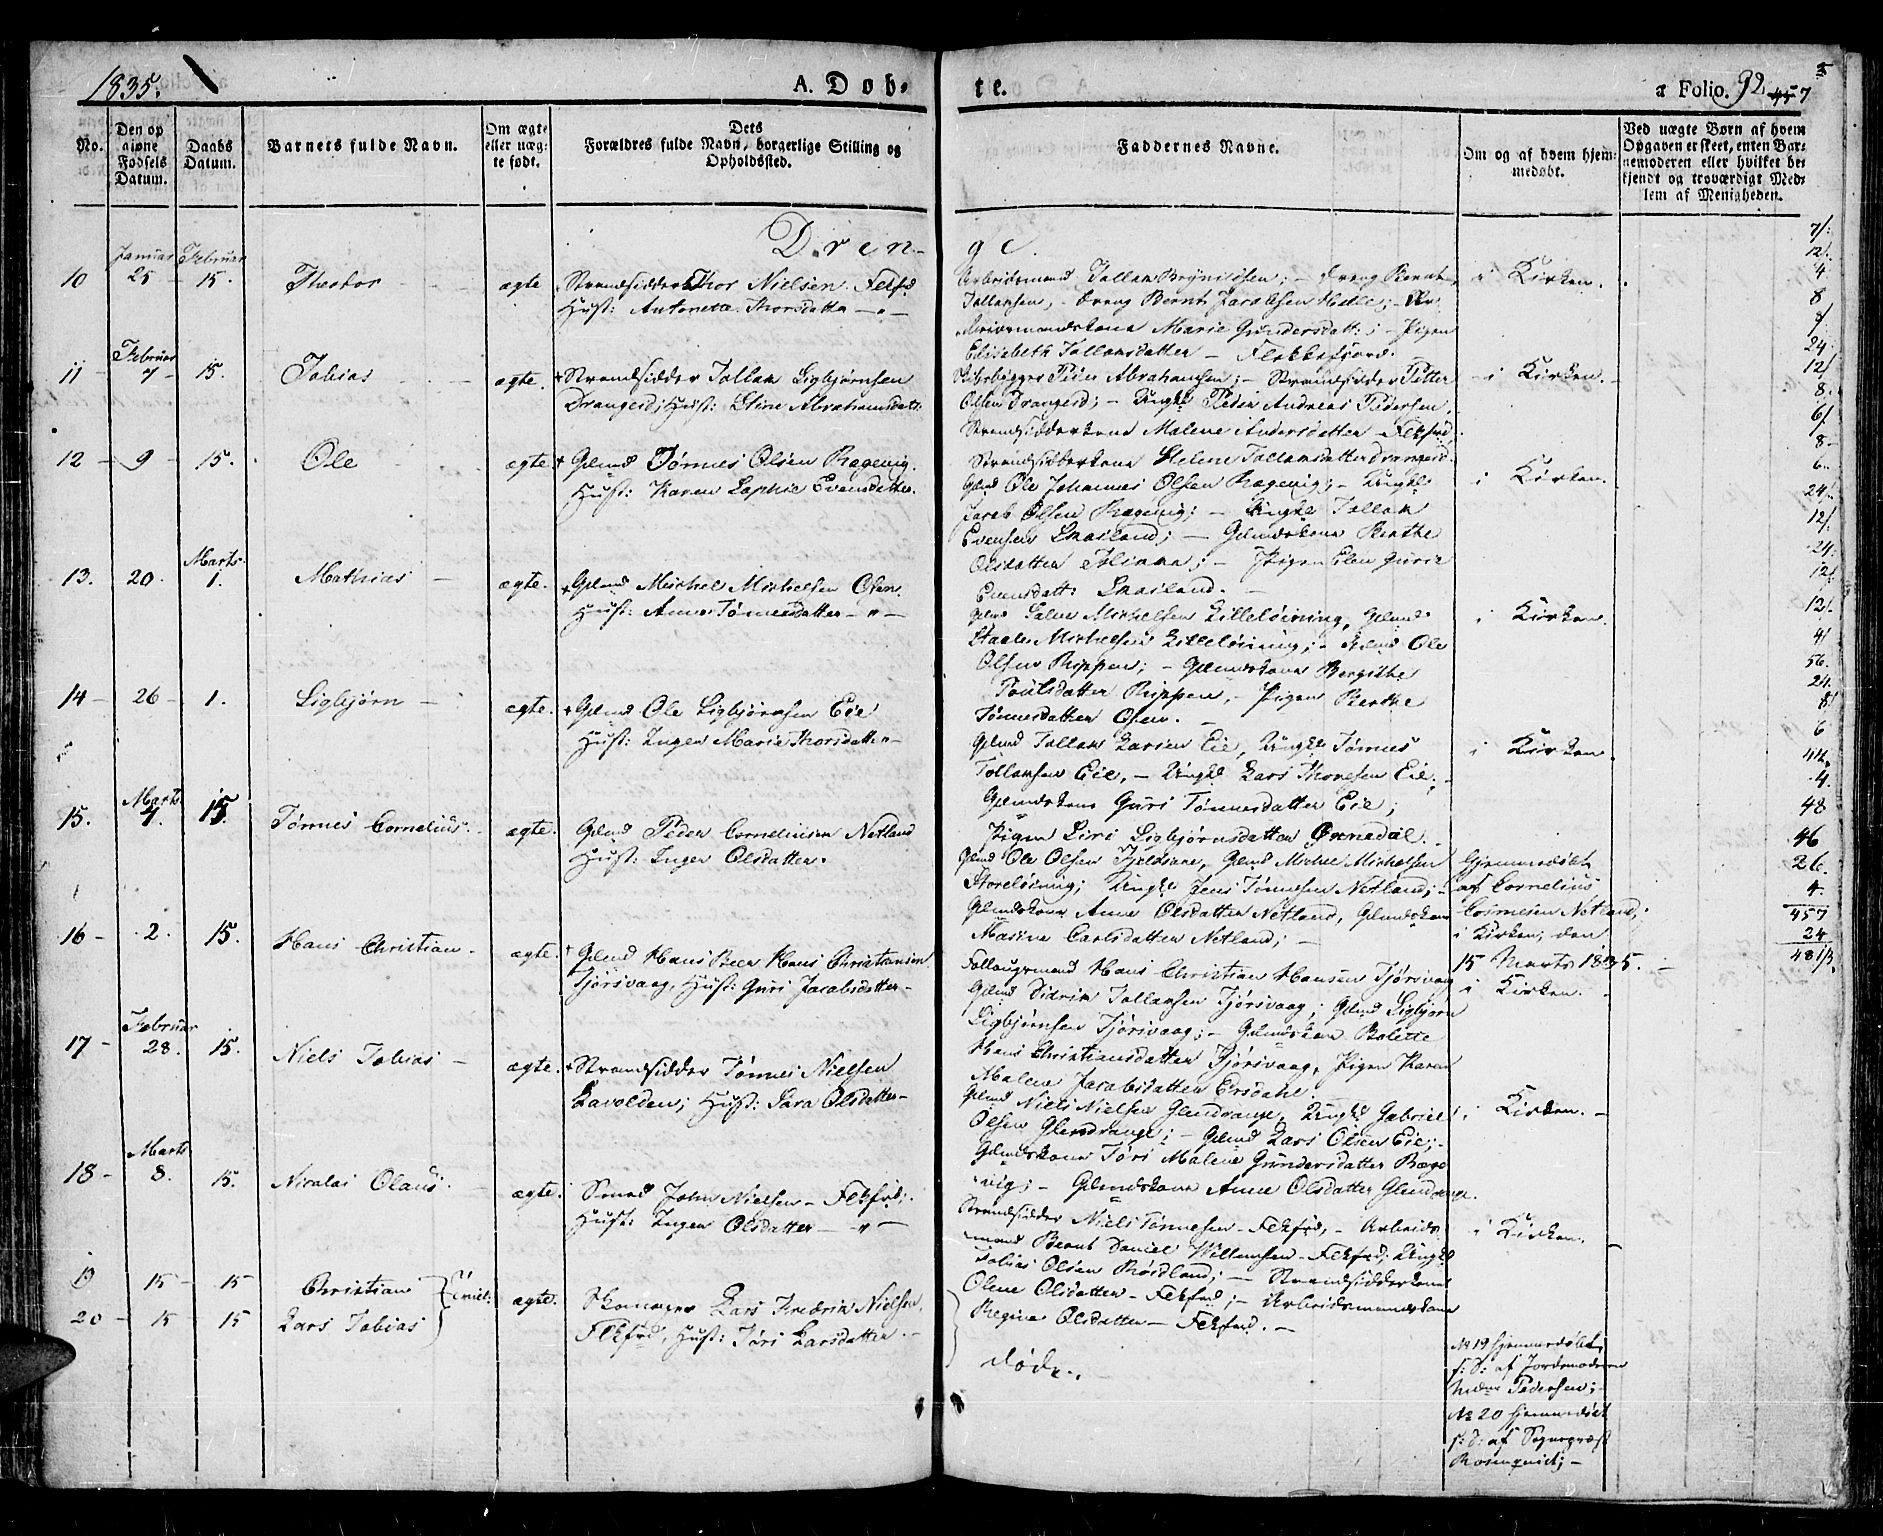 1835.
A. Døb-
te.
a Folio. 92. 457
No.
Den op
givne
Fødsels
Datum.
Daabs
Datum.
Barnets fulde Navn.
Om ægte
eller uæg-
te født.
Dets
Forældres fulde Navn, borgerlige Stilling og
Opholdssted.
Faddernes Navne.
Om og af hvem hjem-
medøbt.
Ved uægte Børn af hvem
Opgaven er skeet, enten Bar-
nemoderen eller hvilket be-
kjendt og troværdigt Med-
lem af Menigheden.
Dren-
ge.
10 Januar 25 Februar 15. Theodor ægte Strandsidder Thor Nielsen Fekfd
Hust: Antonette Thorsdatter —"—
Arbeidsmand Tollak Brynildsen; — Dreng Bernt
Tollaksen, — Dreng Bernt Jacobsen Hedle; — Ar-
beidsmandskone Marie Gundersdatt:; — Pigen
Elisabeth Tollaksdatter — Flekkefjord.
i Kirken.
11 — Februar 7 — 15. Tobias ægte. Strandsidder Tollak Sigbjørnsen
Drangeid; Hust: Stine Abrahamsdatt:
Skibsbygger Peder Abrahamsen; — Strandsidder Petter
Olsen Drangeid; — Ungkl Peder Andreas Pedersen,
Strandsidderkone Malene Andersdatter — Fekfrd,
Strandsidderkone Helene Tollaksdatter Drangeid.
i Kirken.
12 — 9 — 15. Ole ægte. Gdmd Tønnes Olsen Rægevig.
Hust: Karen Sophie Evensdatter.
Gdmd Ole Johannes Olsen Rægevig; — Ungkl
Jacob Olsen Rægevig; — Ungkl Tollak
Evensen Skailand; — Gdmdskone Berthe
Olsdatter; — Pigen Elen Gurie
Evensdatt: Skailand.
i Kirken.
13. 20. Marts 1. Mathias — ægte. Gdmd Michel Michelsen Osen
Hust: Anne Tønnesdatter — " —
Gdmd Michelsen Lilleløining, Gdmd
Staale Michelsen Lilleløining; — Gdmd Ole
Olsen Rippen; — Gdmdskone Bergithe
Poulsdatter Rippen, — Pigen Berthe
Tønnesdatter Osen.
i Kirken.
14 — 26 — 1. Sigbjørn — ægte. Gdmd Ole Sigbjørnsen Eie
Hust: Inger Marie Thorsdatter —
Gdmd Tollak Larsen Eie, Ungkl Tønnes
Tollaksen Eie, — Ungkl Lars Thorsen Eie.
Gdmdskone Guri Tønnesdatter Eie;
Pigen Siri Sigbjørnsdatter Omedal.
i Kirken
15. Marts 4. 15. Tønnes Cornelius. ægte. Gdmd Peder Corneliusen Netland
Hust: Inger Olsdatter.
Gdmd Ole Olsen, Gdmd Michel Michelsen
Storeløining; Ungkl Jens Tønnesen Netland; —
Gdmdskone Anne Olsdatter Netland, Gdmdskone
Masine Carlsdatter Netland; —
Hjemmedøbt
af Cornelius
Cosmesen Netland;
i Kirken; den
15 Marts 1835.
16 — 2. 15. Hans Christian. ægte. Gdmd Hans Peer Hans Christiansen
Tjørsvaag, Hust: Guri Jacobsdatter —
Follaugsmand Hans Christian Hansen Tjørsvaag
Gdmd Didrik Tollaksen Tjørsvaag; Gdmd Sigbjørn
Sigbjørnsen Tjørsvaag; — Gdmdskone Bolette
Hans Christiansdatter Tjørsvaag, Pigen Karen
Malene Jacobsdatter Eersdahl.
i Kirken.
17 — Februar 28. 15. Niels Tobias — ægte. Strandsidder Tønnes Nielsen
Lavolden; Hust: Sara Olsdatter —
Gdmd Niels Nielsen Glendrange, Ungkl Gabriel
Olsen Glendrange; — Gdmd Lars Olsen Eie; —
Gdmdskone Tøri Malene Gundersdatter Ræge-
vig; — Gdmdskone Anne Olsdatter Glendrange.
i Kirken. —
18 — Marts 8. 15. Nicolai Olaus. ægte. Smed John Nielsen — Fekfrd;
Hust: Inger Olsdatter — " —
Strandsidder Niels Tønnesen — Fekfrd, — Arbeids-
mand Bernt Daniel Willumsen — Fekfrd; Ungkl
Tobias Olsen Røidland; — Strandsidderkone
Olene Olsdatter — Fekfrd; — Arbeidsmandskone
Regine Olsdatter — Fekfrd. —
i Kirken.
19 15 — 15 Christian } Tvill: ægte. Skomager Lars Fredrik Nielsen
20 — 15 — 15 Lars Tobias Fekfrd, Hust: Tøri Larsdatter. —
døde.
No 19 hjemmedøbt
f: D: af Jordemoderen
Pedersen; —
No 20 hjemmedøbt
f: D: af Sognepræst
Rosenqvist; —
7/:
12/.
4
8
8/
24.
12/
8.
6/.
8 —
6.
24.
12/.
24.
12/.
12/.
4/
56.
21.
8/
6
44.
4.
48
46
26.
4.
457
24
481/3